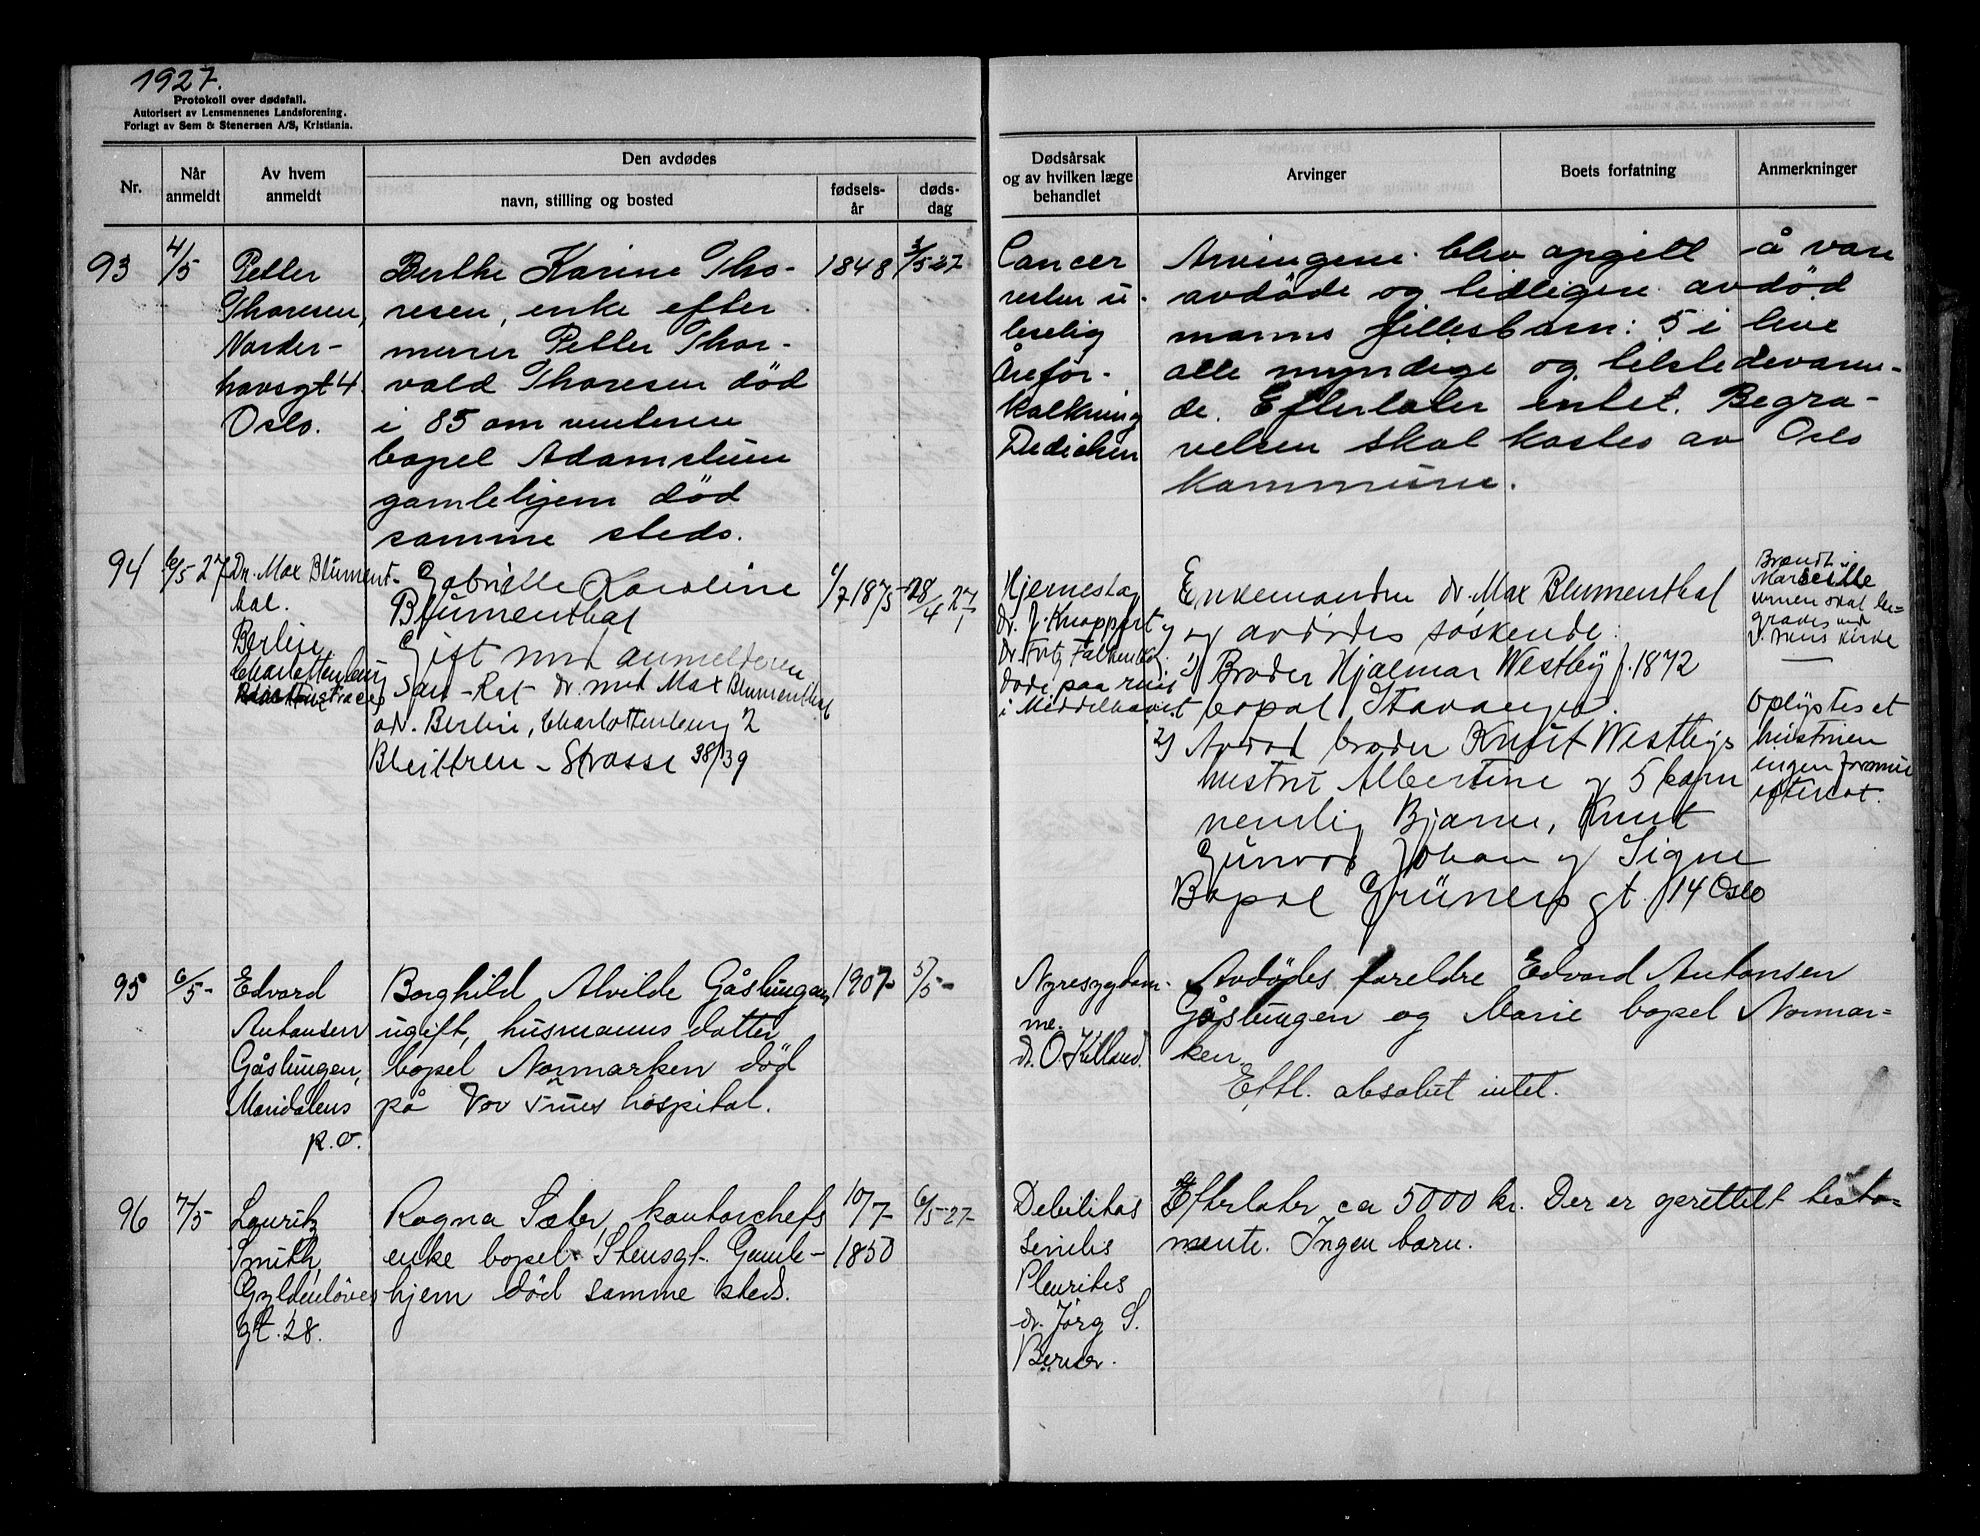 1927.
Protokoll over dødsfall.
Autorisert av Lensmennenes Landsforening.
Forlagt av Sem & Stenersen A/S, Kristiania.
Nr.
Når anmeldt
Av hvem anmeldt
Den avdødes
navn, stilling og bosted
fødsels-
år
døds-
dag
Dødsårsak
og av hvilken læge
behandlet
Arvinger
Boets forfatning
Anmerkninger
93
4/5
Petter
Thoresen,
Norder-
hovsgt 4
Oslo.
Berthe Karine Tho-
resen, enke efter
murer Petter Thor-
vald Thoresen død
i 85 om vinteren
bopel Adamstuen
gamlehjem død
samme steds.
1848
3/5 27
Cancer
Årefor-
kalkning
Dedichen
Arvingene blev opgitt å være
avdøde og tidligere avdød
manns fellesbarn: 5 i live
alle myndige og tilstedeværen-
de. Efterlater intet. Begra-
velsen skal kostes av Oslo
kommune.
94
6/5 27
Dr. Max Blument-
hal.
Berlin
Charlottenburg
Gabrielle Karoline
Blumenthal
Gift med anmelderen
San-Rat dr. med Max Blumenthal
av. Berlin, Charlottenburg 2
Strasse 38/39
1/7 1875
28/4 27
Hjerneslag
Dr. J. Knappert og
Dr. Fritz
Døde paa reise
i Middelhavet
Enkemanden dr. Max Blumenthal
og avdødes søskende:
1) Broder Hjalmar Westby f. 1872
bopæl Stavanger.
2) Avdød broder Knut Westbys
hustru Albertine og 5 barn
nemlig Bjarne, Knut
Gunvor Johan og Signe
Bopæl Grüners gt. 14 Oslo
Brændt i
Marseille
urnen skal be-
graves ved
V. Akers kirke
Oplystes at
hustruen
ingen formue
efterlot.
95
6/5-
Edvard
Antonsen
Gåslungen,
Maridalens
p.o.
Borghild Alvilde Gåslungen,
ugift, husmanns datter
bopel Normarken død
på Vor Frues hospital.
1907-
5/5-
Nyresygdom-
me.
dr. O. Killand.
Avdødes foreldre Edvard Antonsen
Gåslungen og Marie bopel Normar-
ken
Eftl. absolut intet.
96
7/5-
Lauritz
Smith,
Gyldenløves
gt. 28.
Ragna Sæter, kontorchefs
enke bopel Stensgt. Gamle-
hjem død samme steds.
10/7-
1850
6/5-27-
Debilitas
senilis
Pleurites
dr. Jørg S.
Berner.
Efterlater ca 5000 kr. Der er oprettet testa-
mente. Ingen barn.